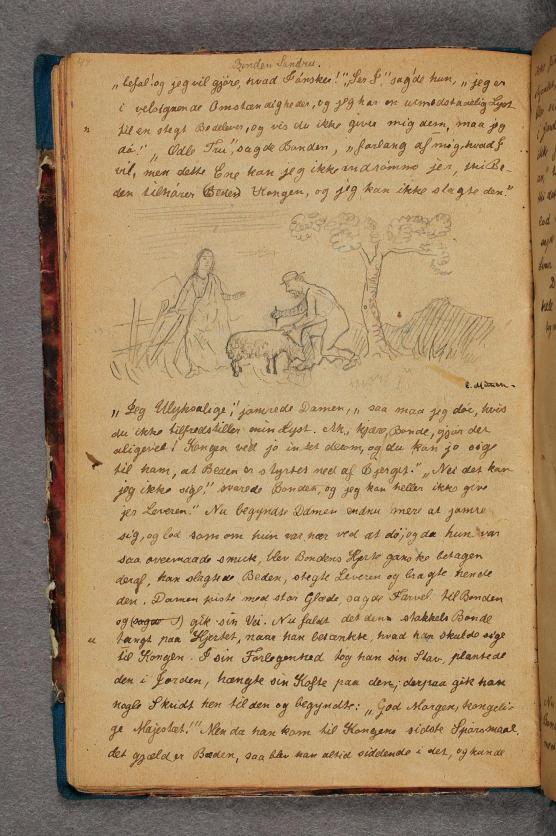 44
Bonden Sandru.
„befal! og jeg vil gjøre, hvad I ønsker!" „Ser I", sagde hun, „jeg er
i velsignende Omstændigheder, og jeg har en uimodstaaelig Lyst
til en stegt Bedelever, og vis du ikke giver mig dem, maa jeg
dø!" „Ædle Fru", sagde Bonden, „forlang af mig, hvad I
vil, men dette Ene kan jeg ikke indrømme jer, thi Be-
den tilhører Kongen, og jeg kan ikke slagte den."
E. Munch.
„Jeg Ulyksalige", jamrede Damen, „saa maa jeg døi, hvis
du ikke tilfredstiller min Lyst. Ak, kjære Bonde, gjør det
aligevel! Kongen ved jo intet derom, og du kan jo sige
til ham, at Beden er styrtet ned af Bjerget." „Nei det kan
jeg ikke sige!" svarede Bonden, og jeg kan heller ikke give
jer Leveren." Nu begyndte Damen endnu mere at jamre
sig, og lod som om hun var nær ved at dø, og da hun var
saa overmaade smuk, blev Bondens Hjerte ganske betagen
deraf, han slagtede Beden, stegte Leveren og bragte hende
den. Damen spiste med stor Glæde, sagde Farvel til Bonden
og (sagde) gik sin Vei. Nu faldt det den stakkels Bonde
tungt paa Hjertet, naar han betænkte, hvad han skulde sige
til Kongen. I sin Forlegenhed tog han sin Stav, plantede
den i Jorden, hængte sin Kofte paa den; derpaa gik han
nogle Skridt hen til den og begyndte: „God Morgen, kongeli-
ge Majestæt!" Men da han kom til Kongens sidste Spørsmaal,
det gjælder Bæden, saa blev han altid siddende i det, og kunde